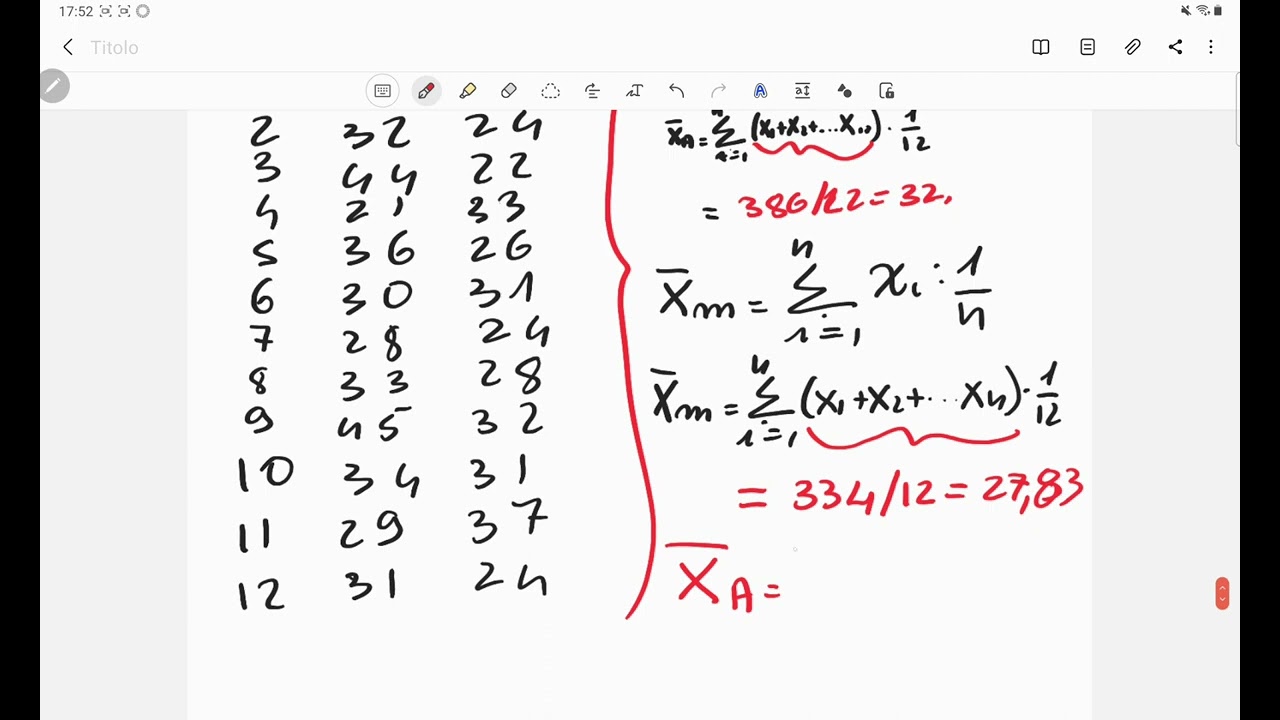 17:52
Titolo
2 32 24
3 44 22
4 21 33
5 36 26
6 30 31
7 28 24
8 33 28
9 45 32
10 34 31
11 29 37
12 31 24
X̄A = Σ n i=1 (x1+x2+...x12) · 1/12
= 386/12 = 32,
X̄m = Σ n i=1 xi · 1/n
X̄m = Σ n i=1 (x1+x2+...xn) · 1/12
= 334/12 = 27,83
X̄A =